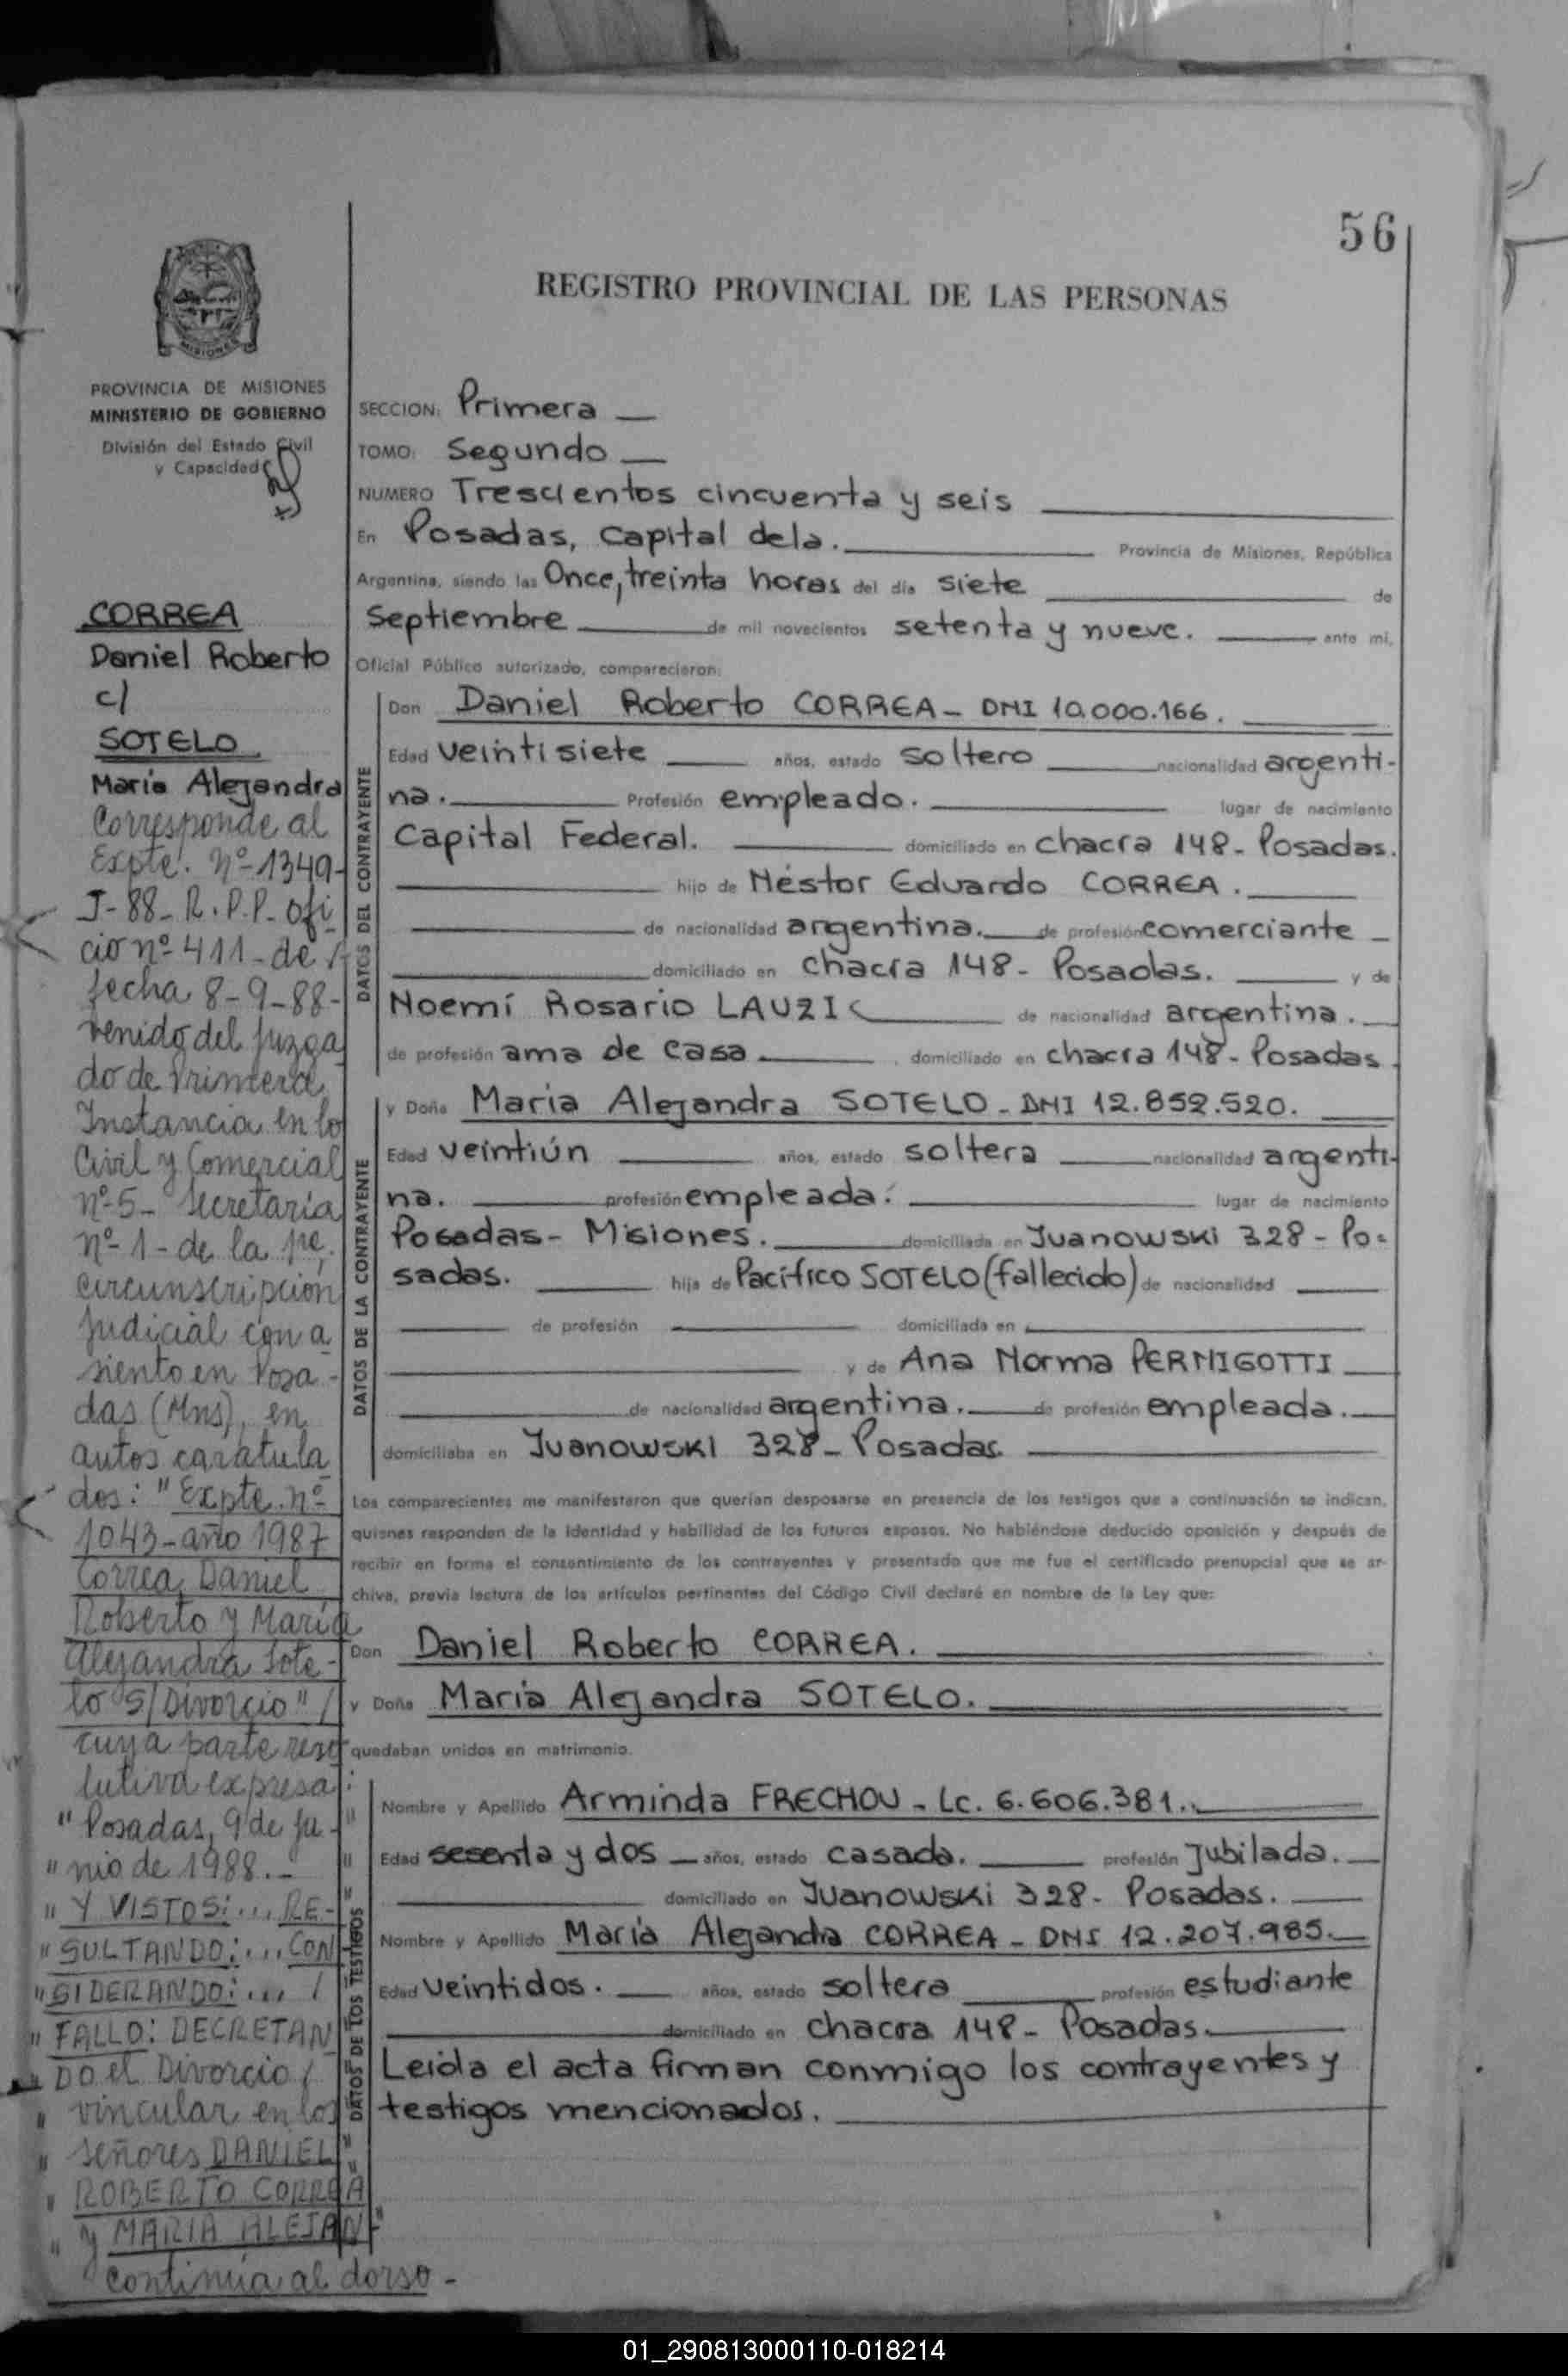 56
REGISTRO PROVINCIAL DE LAS PERSONAS
MISIONES
PROVINCIA DE MISIONES
MINISTERIO DE GOBIERNO
División del Estado Civil
y Capacidad
CORREA
Daniel Roberto
c/
SOTELO
Maria Alejandra
Corresponde al
Expte. nº 1349-
J-88- R.P.P. ofi
cio nº 411- de /
fecha 8-9-88-
venido del juzga
do de Primera
Instancia en lo
Civil y Comercial
nº 5- Secretaría
nº 1- de la
circunscripción
judicial con a
siento en Posa-
das (Mns), en
autos caratula
dos: "Expte. nº
1043-año 1987
Correa, Daniel
Roberto y María
Alejandra Sote-
lo S/Divorcio" /
cuya parte reso
lutiva expresa:
"Posadas, 9 de ju- "
" nio de 1988.- "
" Y VISTOS:... RE- "
" SULTANDO:... CON "
" SIDERANDO:... / "
" FALLO: DECRETAN "
" DO el Divorcio / "
" vincular en los "
" señores DANIEL "
" ROBERTO CORREA "
" y MARIA ALEJAN- "
continúa al dorso-
SECCION: Primera
TOMO: Segundo
NUMERO Trescientos cincuenta y seis
En Posadas, capital dela. Provincia de Misiones, República
Argentina, siendo las Once, treinta horas del día siete de
septiembre de mil novecientos setenta y nueve. ante mi,
Oficial Público autorizado, comparecieron:
DATOS DEL CONTRAYENTE
Don Daniel Roberto CORREA - DNI 10.000.166.
Edad veintisiete años, estado soltero nacionalidad argenti-
na. Profesión empleado. lugar de nacimiento
Capital Federal. domiciliado en chacra 148- Posadas.
hijo de Néstor Eduardo CORREA.
de nacionalidad argentina. de profesión comerciante
domiciliado en chacra 148- Posadas. y de
Noemí Rosario LAUZIC de nacionalidad argentina.
de profesión ama de casa, domiciliado en chacra 148- Posadas.
DATOS DE LA CONTRAYENTE
y Doña Maria Alejandra SOTELO - DNI 12.852.520.
Edad veintiún años, estado soltera nacionalidad argenti-
na. profesión empleada. lugar de nacimiento
Posadas- Misiones. domiciliada en Ivanowski 328- Po-
sadas. hija de Pacífico SOTELO (fallecido) de nacionalidad
de profesión domiciliada en
y de Ana Norma PERNIGOTTI
de nacionalidad argentina. de profesión empleada.
domiciliaba en Ivanowski 328- Posadas.
Los comparecientes me manifestaron que querían desposarse en presencia de los testigos que a continuación se indican,
quienes responden de la identidad y habilidad de los futuros esposos. No habiéndose deducido oposición y después de
recibir en forma el consentimiento de los contrayentes y presentado que me fue el certificado prenupcial que se ar-
chiva, previa lectura de los artículos pertinentes del Código Civil declaré en nombre de la Ley que:
Don Daniel Roberto CORREA.
y Doña Maria Alejandra SOTELO.
quedaban unidos en matrimonio.
DATOS DE LOS TESTIGOS
Nombre y Apellido Arminda FRECHOU - Lc. 6.606.381.
Edad sesenta y dos años, estado casada. profesión jubilada.
domiciliado en Ivanowski 328- Posadas.
Nombre y Apellido María Alejandra CORREA - DNI 12.207.985.
Edad veintidos. años, estado soltera profesión estudiante
domiciliado en chacra 148- Posadas.
Leida el acta firman conmigo los contrayentes y
testigos mencionados.
01_290813000110-018214